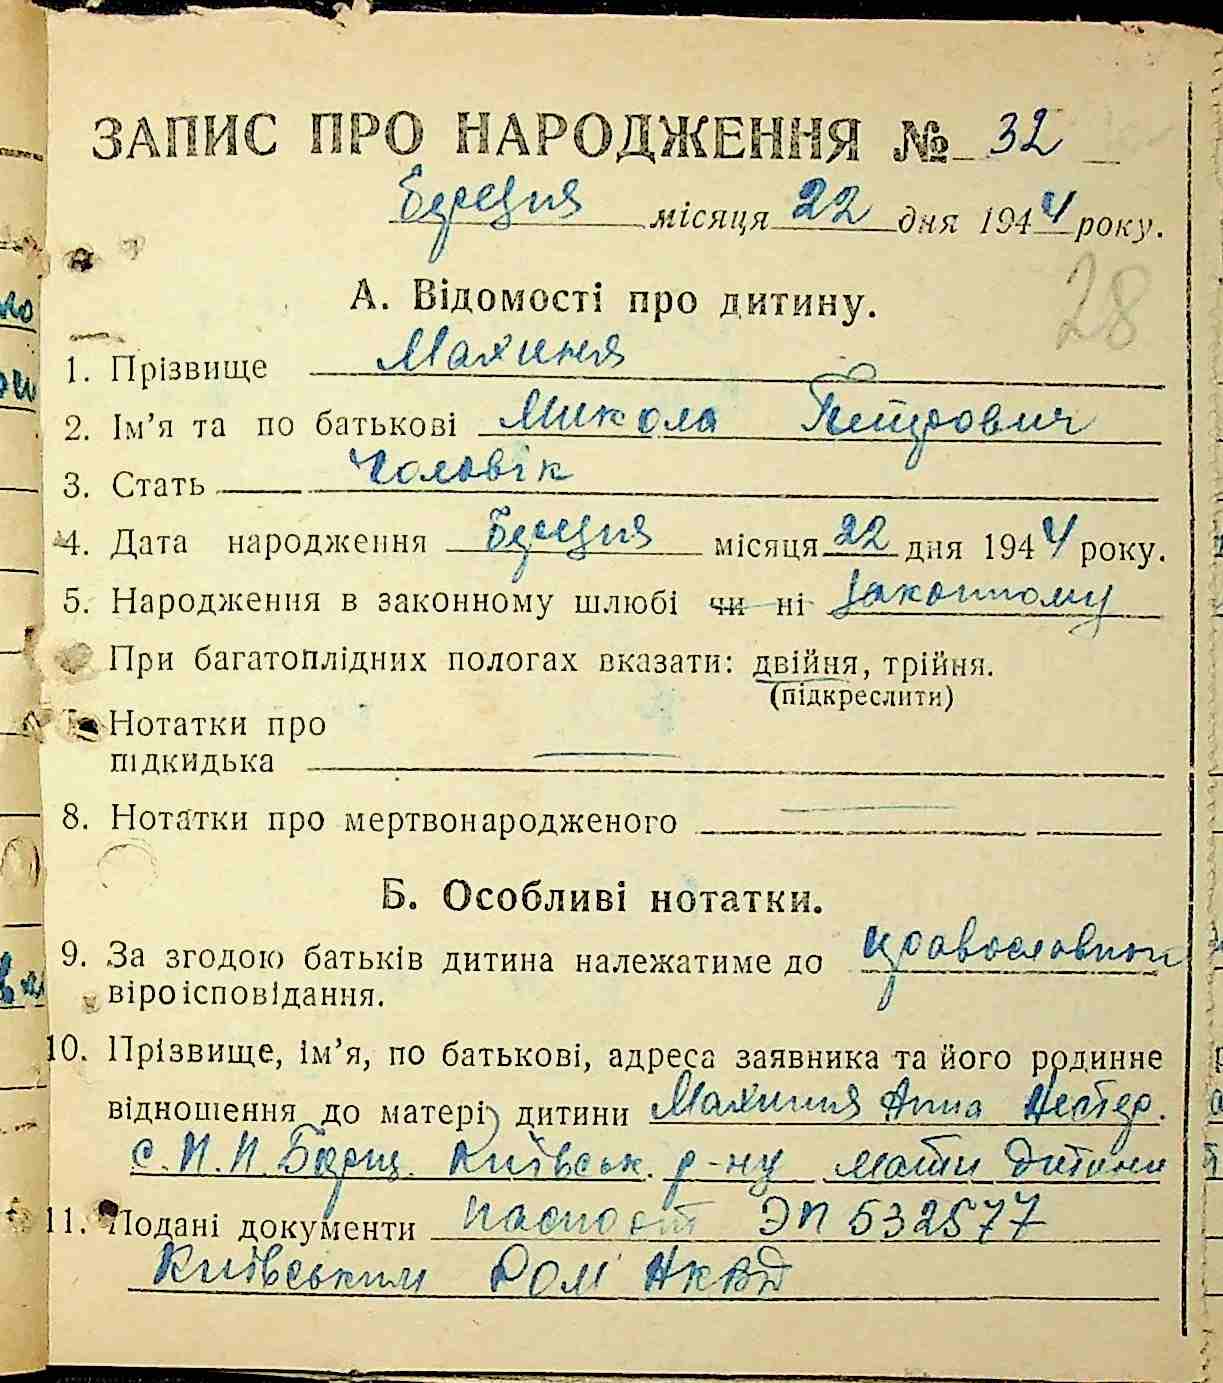 ЗАПИС ПРО НАРОДЖЕННЯ № 32
Берещня місяця 22 дня 1944 року.
28
А. Відомості про дитину.
1. Прізвище Махиня
2. Ім’я та по батькові Микола Петрович
3. Стать Чоловік
4. Дата народження Берещня місяця 22 дня 1944 року.
5. Народження в законному шлюбі чи ні законному
При багатоплідних пологах вказати: двійня, трійня.
(підкреслити)
Нотатки про
підкидька
8. Нотатки про мертвонародженого
Б. Особливі нотатки.
9. За згодою батьків дитина належатиме до православної
віроісповідання.
10. Прізвище, ім’я, по батькові, адреса заявника та його родинне
відношення до матері дитини Махиня Анна Нестер.
с. П. П. Борщ. Київськ. р-ну мати дитини
11. Подані документи паспорт ЭП 532577
Київським РОМ НКВД